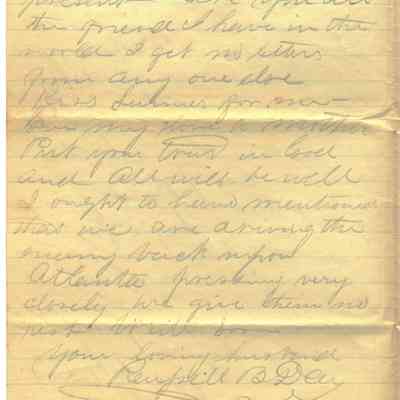 present
the friend I have in the
world I get no letters
from any one else
Kiss for me
Put your Trust in God
and All will be well
I ought to have mentioned
that we are driving the
enemy back upon
Atlanta pressing very
closely we give them no
rest Write soon
Your loving husband
B Day